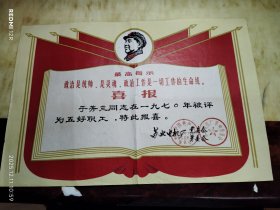 最高指示
政治是统帅，是灵魂，政治工作是一切工作的生命线。
喜报
于芳兰同志在一九七〇年被评
为五好职工，特此报喜。
党委会
革委会
REDMI K
2025.12.11 10:59